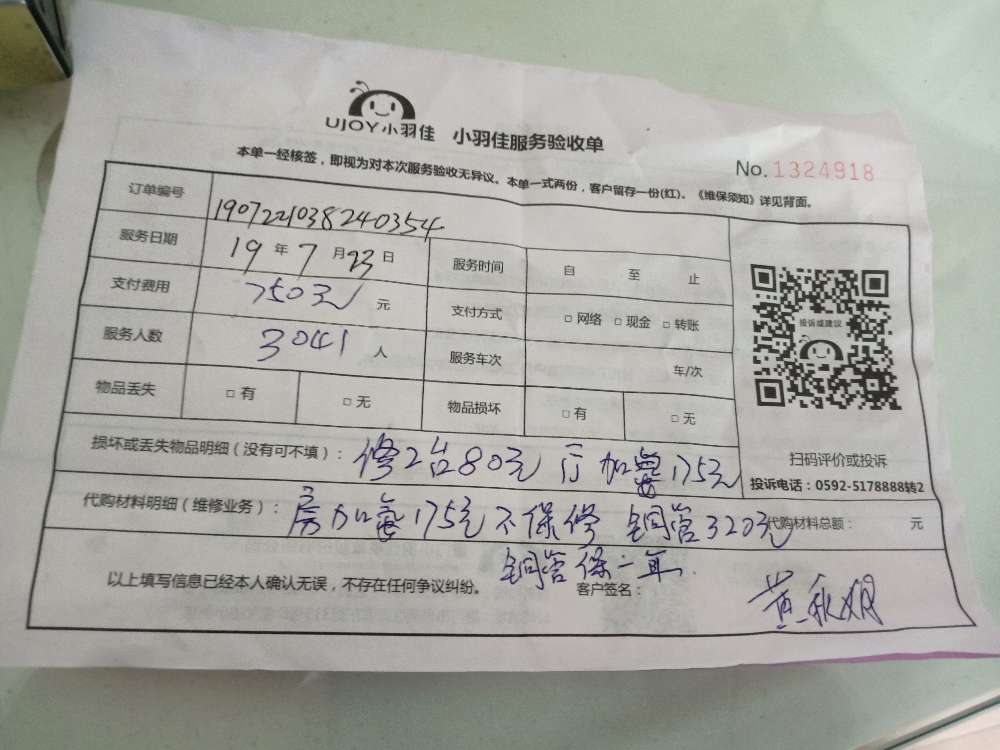 UJOY小羽佳 小羽佳服务验收单
No.1324918
本单一经核签，即视为对本次服务验收无异议。本单一式两份，客户留存一份(红)。《维保须知》详见背面。
订单编号 1907221038240354
服务日期 19 年 7 月 23 日 服务时间 自 至 止
支付费用 750元 元 支付方式 □ 网络 □ 现金 □ 转账
服务人数 3041 人 服务车次 车/次
物品丢失 □ 有 □ 无 物品损坏 □ 有 □ 无
投诉或建议
扫码评价或投诉
投诉电话：0592-5178888转2
损坏或丢失物品明细（没有可不填）： 修2台80元 厅加氟175元
代购材料明细（维修业务）： 房加氟175元不保修 铜管320元 代购材料总额： 元
铜管保一年
以上填写信息已经本人确认无误，不存在任何争议纠纷。 客户签名：